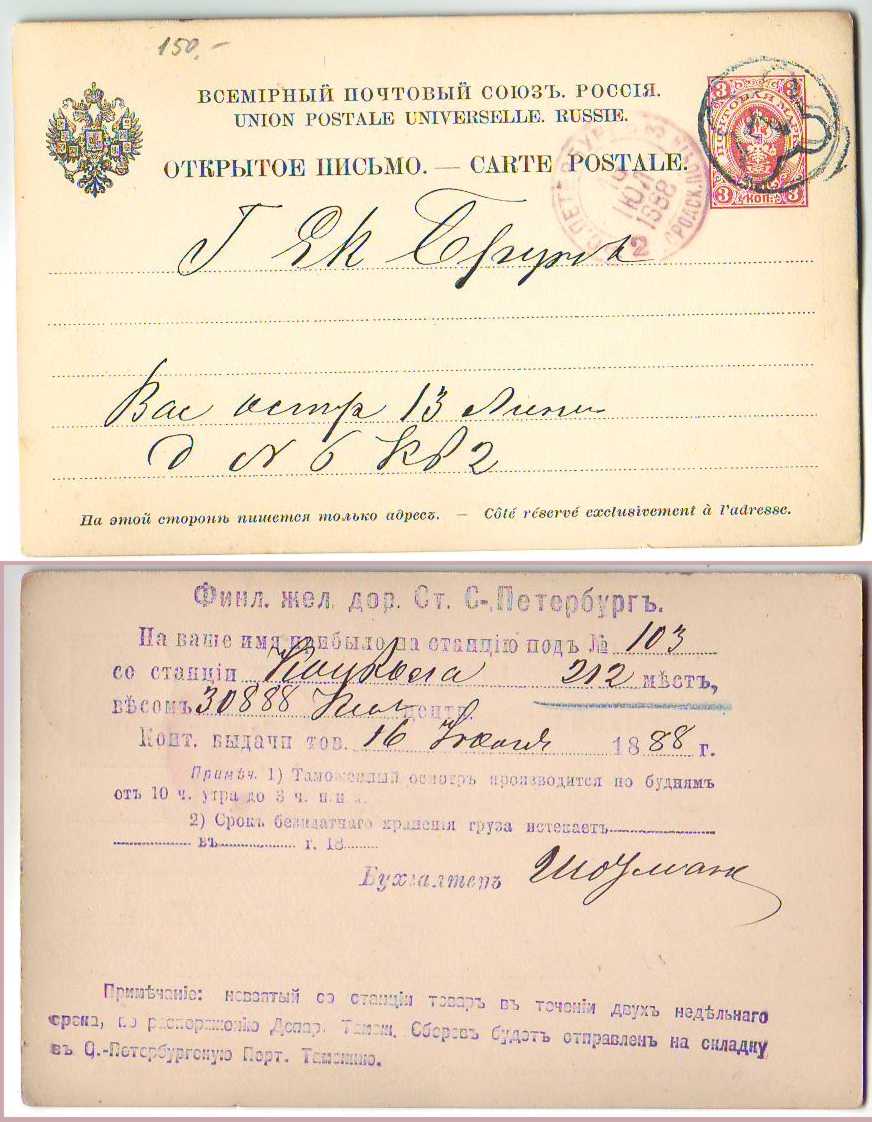 150,-
ВСЕМІРНЫЙ ПОЧТОВЫЙ СОЮЗЪ. РОССІЯ.
UNION POSTALE UNIVERSELLE. RUSSIE.
ОТКРЫТОЕ ПИСЬМО. — CARTE POSTALE.
3 3
ПОЧТОВАЯ МАРКА
3 КОП. 3
С.ПЕТЕРБУРГЪ
1888
2
Г
Вас остр 13 Линия
д № 6 кв 2
На этой сторонѣ пишется только адресъ. — Côté réservé exclusivement à l'adresse.
Финл. жел. дор. Ст. С-Петербургъ.
На ваше имя прибыло на станцію подъ № 103
со станціи 212 мѣстъ,
вѣсомъ 30888 центр.
Конт. выдачи тов. 16 Іюля 1888 г.
Примѣч. 1) Таможенный осмотръ производится по буднямъ
отъ 10 ч. утра до 3 ч. п. п. д.
2) Срокъ безплатнаго храненія груза истекаетъ
въ г. 18
Бухгалтеръ
Примѣчаніе: невзятый со станціи товаръ въ теченіи двухъ недѣльнаго
срока, по распоряженію Депар. Тамож. Сборовъ будетъ отправленъ на складку
въ С.-Петербургскую Порт. Таможню.